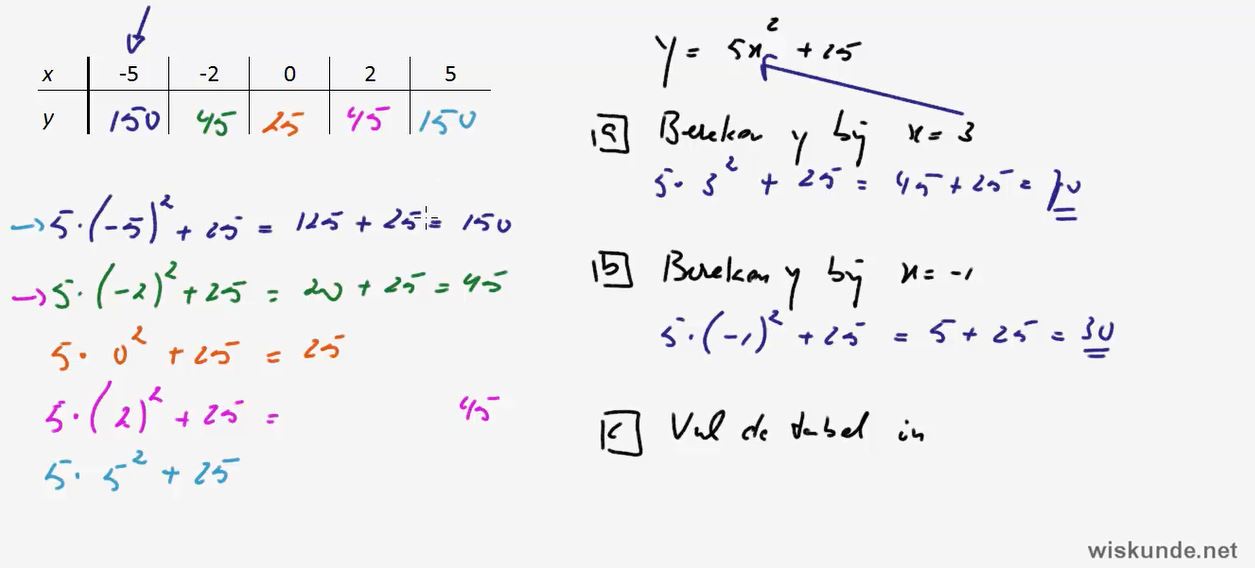 x -5 -2 0 2 5
y 150 45 25 45 150
→ 5·(-5)² + 25 = 125 + 25 = 150
→ 5·(-2)² + 25 = 20 + 25 = 45
5· 0² + 25 = 25
5·(2)² + 25 = 45
5· 5² + 25
y = 5x² + 25
a Bereken y bij x = 3
5· 3² + 25 = 45 + 25 = 70
b Bereken y bij x = -1
5·(-1)² + 25 = 5 + 25 = 30
c Vul de tabel in
wiskunde.net